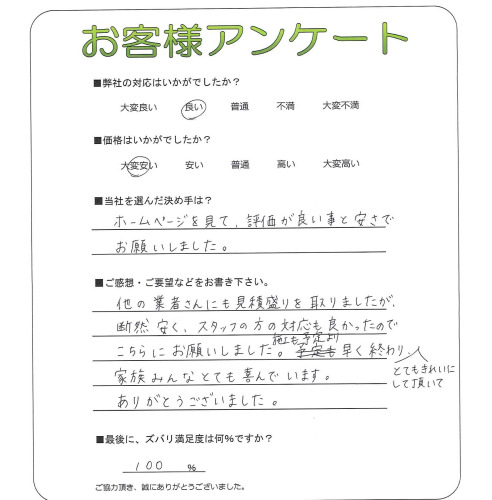 お客様アンケート
■弊社の対応はいかがでしたか?
大変良い 良い 普通 不満 大変不満
■価格はいかがでしたか?
大変安い 安い 普通 高い 大変高い
■当社を選んだ決め手は?
ホームページを見て、評価が良い事と安さで
お願いしました。
■ご感想・ご要望などをお書き下さい。
他の業者さんにも見積盛りを取りましたが、
断然安く、スタッフの方の対応も良かったので
こちらにお願いしました。施工も予定より早く終わり、
とてもきれいに
して頂いて
家族みんなとても喜んでいます。
ありがとうございました。
■最後に、ズバリ満足度は何%ですか?
100 %
ご協力頂き、誠にありがとうございました。